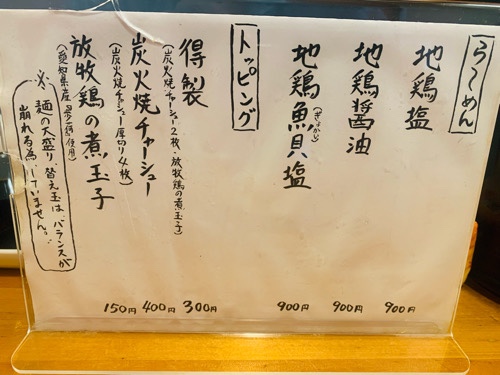 らーめん
地鶏塩 900円
地鶏醤油 900円
地鶏魚貝塩 900円
(ぎょかい)
トッピング
得製 300円
(炭火焼チャーシュー2枚・放牧鶏の煮玉子)
炭火焼チャーシュー 400円
(炭火焼チャーシュー厚切り4枚)
放牧鶏の煮玉子 150円
(愛知県産
使用)
※麺の大盛り替え玉はバランスが
崩れる為、していません。